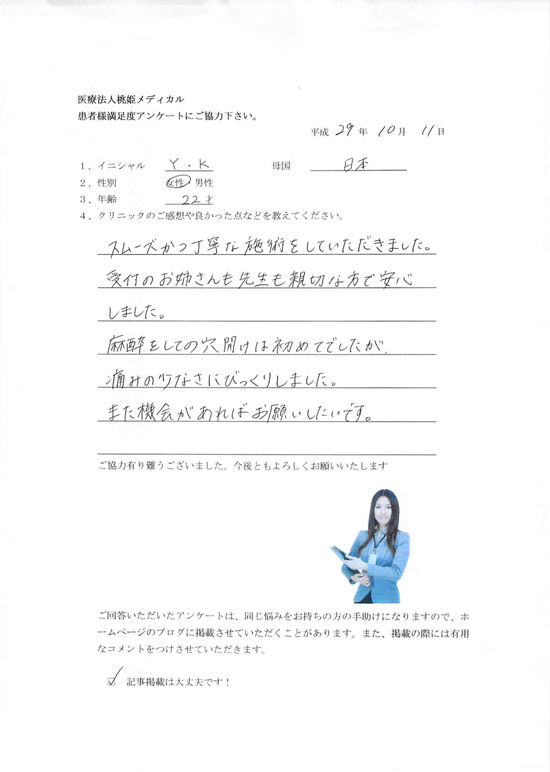 医療法人桃姫メディカル
患者様満足度アンケートにご協力下さい。
平成 29 年 10 月 11 日
1、イニシャル Y.K 母国 日本
2、性別 女性・男性
3、年齢 22才
4、クリニックのご感想や良かった点などを教えてください。
スムーズかつ丁寧な施術をしていただきました。
受付のお姉さんも先生も親切な方で安心
しました。
麻酔をしての穴開けは初めてでしたが、
痛みの少なさにびっくりしました。
また機会があればお願いしたいです。
ご協力有り難うございました。今後ともよろしくお願いいたします
ご回答いただいたアンケートは、同じ悩みをお持ちの方の手助けになりますので、ホ
ームページのブログに掲載させていただくことがあります。また、掲載の際には有用
なコメントをつけさせていただきます。
☑ 記事掲載は大丈夫です！